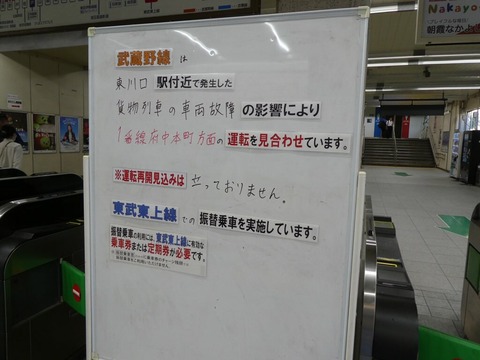 武蔵野線 は
東川口 駅付近で発生した
貨物列車 の 車両故障 の影響により
1番線 府中本町方面の 運転を見合わせています。
※運転再開見込みは 立っておりません。
東武東上線 での 振替乗車を実施しています。
振替乗車の利用には、東武東上線に有効な
乗車券または定期券が必要です。
Nakayo
朝霞なかよ